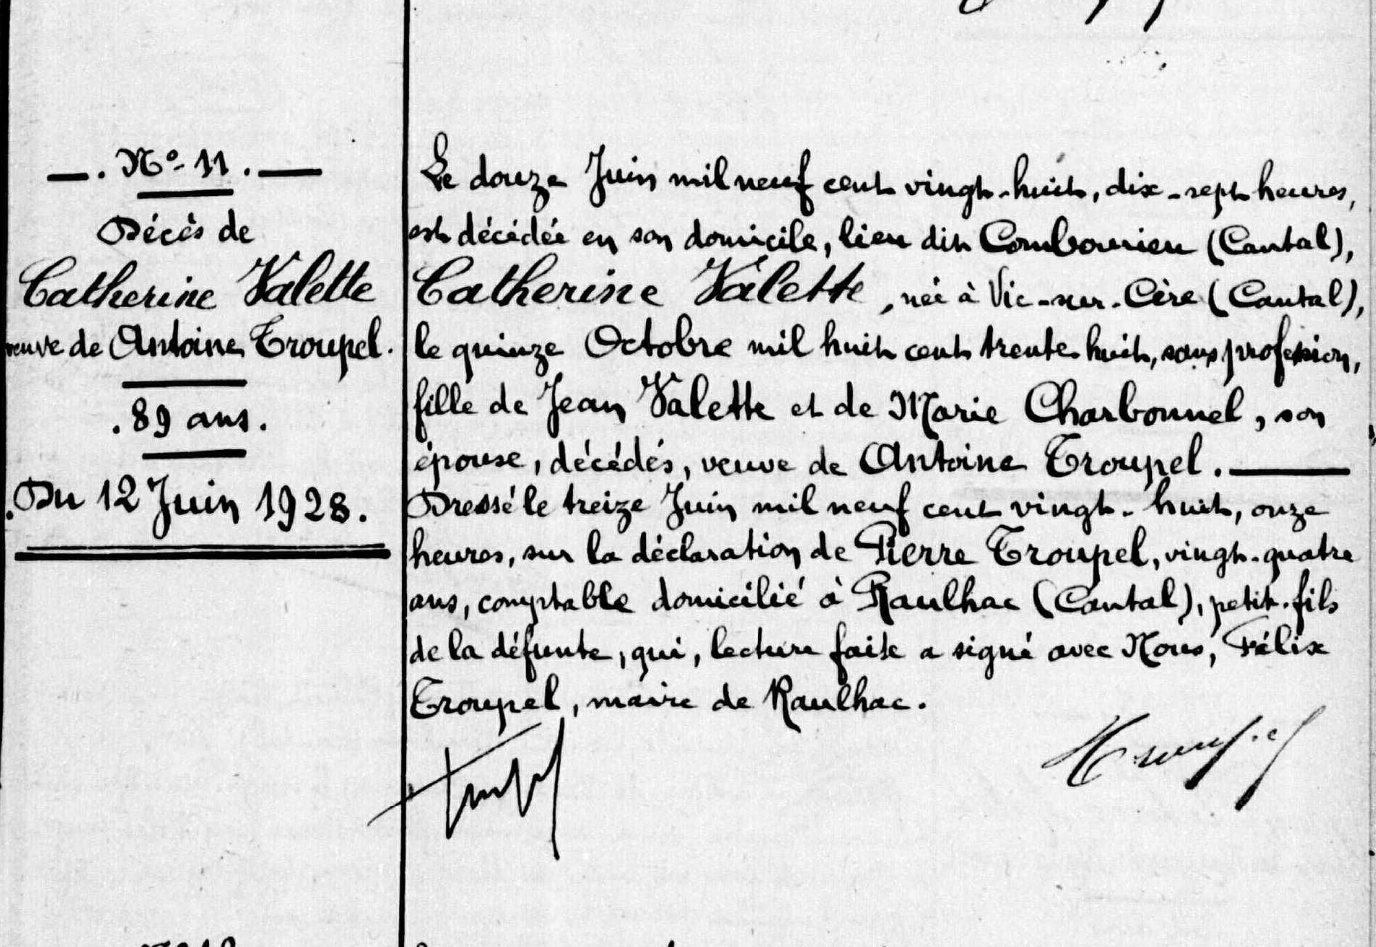 — . N° 11 . —
Décès de
Catherine Valette
veuve de Antoine Troupel.
. 89 ans.
. Du 12 Juin 1928.
Le douze Juin mil neuf cent vingt-huit, dix-sept heures,
est décédée en son domicile, lieu dit (Cantal),
Catherine Valette, née à Vic-sur-Cère (Cantal),
le quinze Octobre mil huit cent trente huit, sans profession,
fille de Jean Valette et de Marie Charbonnel, son
épouse, décédés, veuve de Antoine Troupel. —
Dressé le treize Juin mil neuf cent vingt-huit, onze
heures, sur la déclaration de Pierre Troupel, vingt-quatre
ans, comptable domicilié à Raulhac (Cantal), petit-fils
de la défunte, qui, lecture faite a signé avec Nous, Félix
Troupel, maire de Raulhac.
Troupel